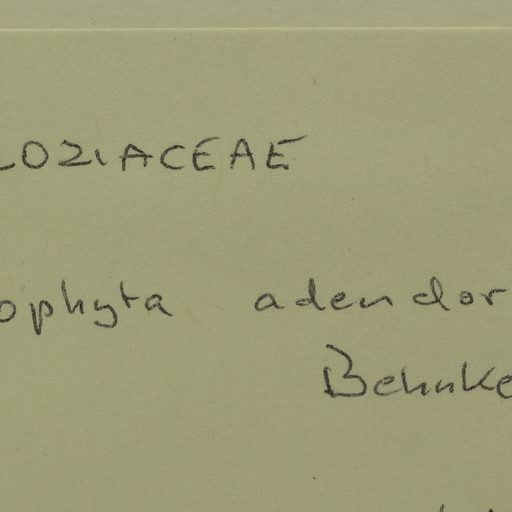 LOZIACEAE
ophyta adendor
Behnke